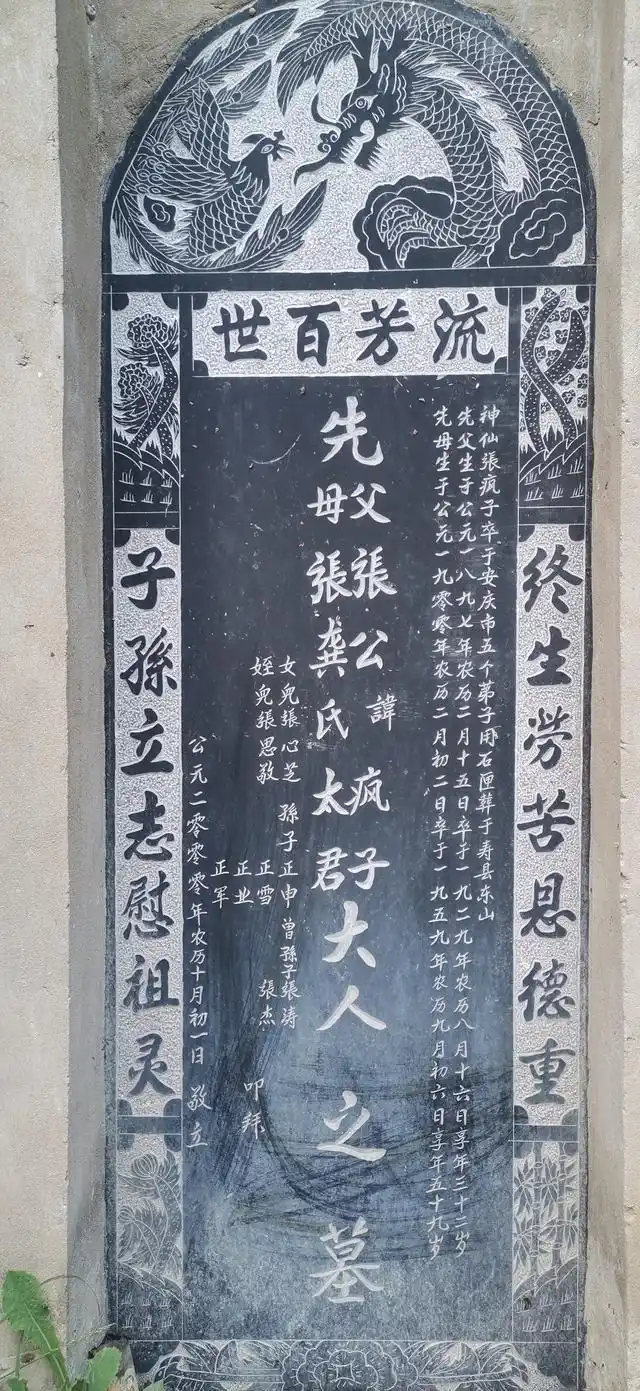 流芳百世
终生勞苦恩德重
神仙張疯子卒于安庆市五个弟子用石匣葬于寿县东山
先父生于公元一八九七年农历二月十五日卒于一九二九年农历八月十六日享年三十二岁
先母生于公元一九零零年农历二月初二日卒于一九五九年农历九月初六日享年五十九岁
先父張公諱疯子大人之墓
母張龚氏太君
女兒張心芝 孫子正申 曾孫子張涛
姪兒張思敬 正雪 張杰
正业
正军
叩拜
公元二零零零年农历十月初一日 敬立
子孫立志慰祖灵